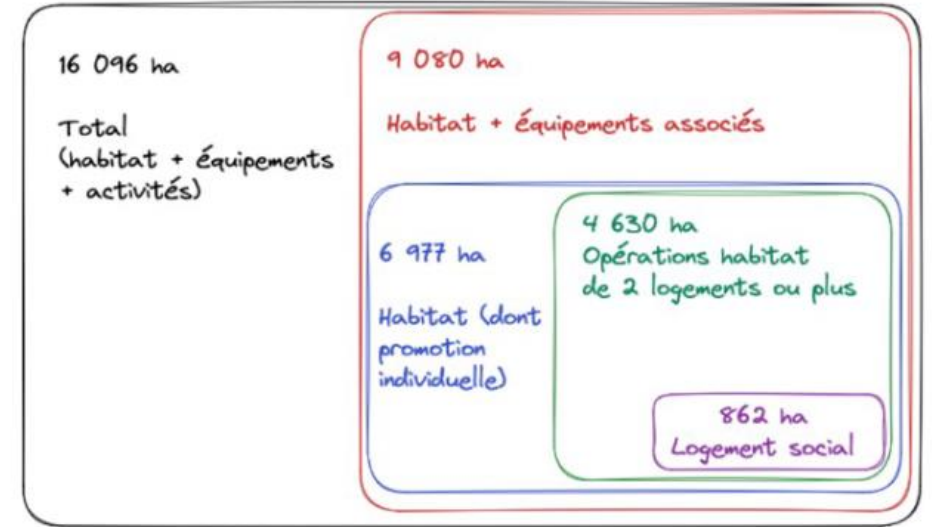 16 096 ha
Total
(habitat + équipements
+ activités)
9 080 ha
Habitat + équipements associés
6 977 ha
Habitat (dont
promotion
individuelle)
4 630 ha
Opérations habitat
de 2 logements ou plus
862 ha
Logement social